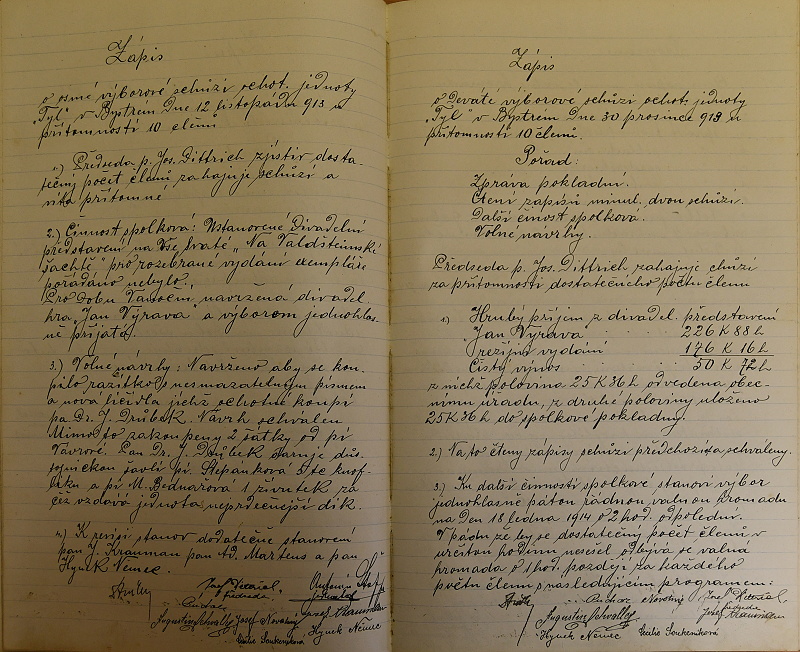 Zápis
o osmé výborové schůzi ochot. jednoty
"Tyl" v Bystrém Dne 12 listopadu 913 za
přítomnosti 10 členů
1.) Předseda p. Jos. Dittrich zjistiv dosta-
tečný počet členů zahajuje schůzi a
vítá přítomné
2.) Činnost spolková: Ustanovené Divadelní
představení na Vše svaté „Na Valdšteinské
šachtě" pro rozebrané vydání exempláře
pořádáno nebylo.
Pro Dobu Vánoční navržená divadel.
hra „Jan Výrava" a výborem jednohlas-
ně přijata.
3.) Volné návrhy: Navrženo aby se kou-
pilo razítko s nesmazatelným písmem
a nová líčidla jichž ochotně koupí
pa Dr. J. Drůbek. Návrh schválen
Mimo to zakoupeny 2 šátky od pí
Vávrové. Pan Dr. J. Drůbek daruje důs-
tojnickou šavli pí. Štěpánková
a pí M. Bednářová 1 živůtek za
čež vzdává jednota nejsrdečnější dík.
4.) K revisi stanov dodatečně stanoveni
pan J. Trauman pan Ad. Martens a pan
Hynek Němec.
Josef
Augustin Schvalley Josef Novotný
Hynek Němec
Cecilie Soukeníková
Zápis
o Deváté výborové schůzi ochot. jednoty
"Tyl" v Bystrém Dne 30 prosince 913 za
přítomnosti 10 členů.
Pořad:
Zpráva pokladní.
Čtení zápisů minul. dvou schůzí.
Další činost spolková.
Volné návrhy.
Předseda p. Jos. Dittrich zahajuje chůzi
za přítomnosti dostatečného počtu členů
1.) Hrubý příjem z divadel. představení
Jan Výrava 226 K 88 h
režijní vydání 176 K 16 h
čistý výnos 50 K 72 h
z nichž polovina 25 K 36 h odvedena obec-
nímu úřadu, z druhé poloviny uloženo
25 K 36 h do spolkové pokladny.
2.) Na to čteny zápisy schůzí předchozí a schváleny.
3.) Ku další činnosti spolkové stanoví výbor
jednoklasně řádnou valnou hromadu
na Den 18 ledna 1914 o 2 hod. odpolední.
V pádu že by se dostatečný počet členů v
určitou hodinu nesešel odbývá se valná
hromada o 1 hod. později za každého
počtu členů s následujícím programem:
Novotný
Josef
Augustin Schvalley
Hynek Němec
Cecilie Soukeníková